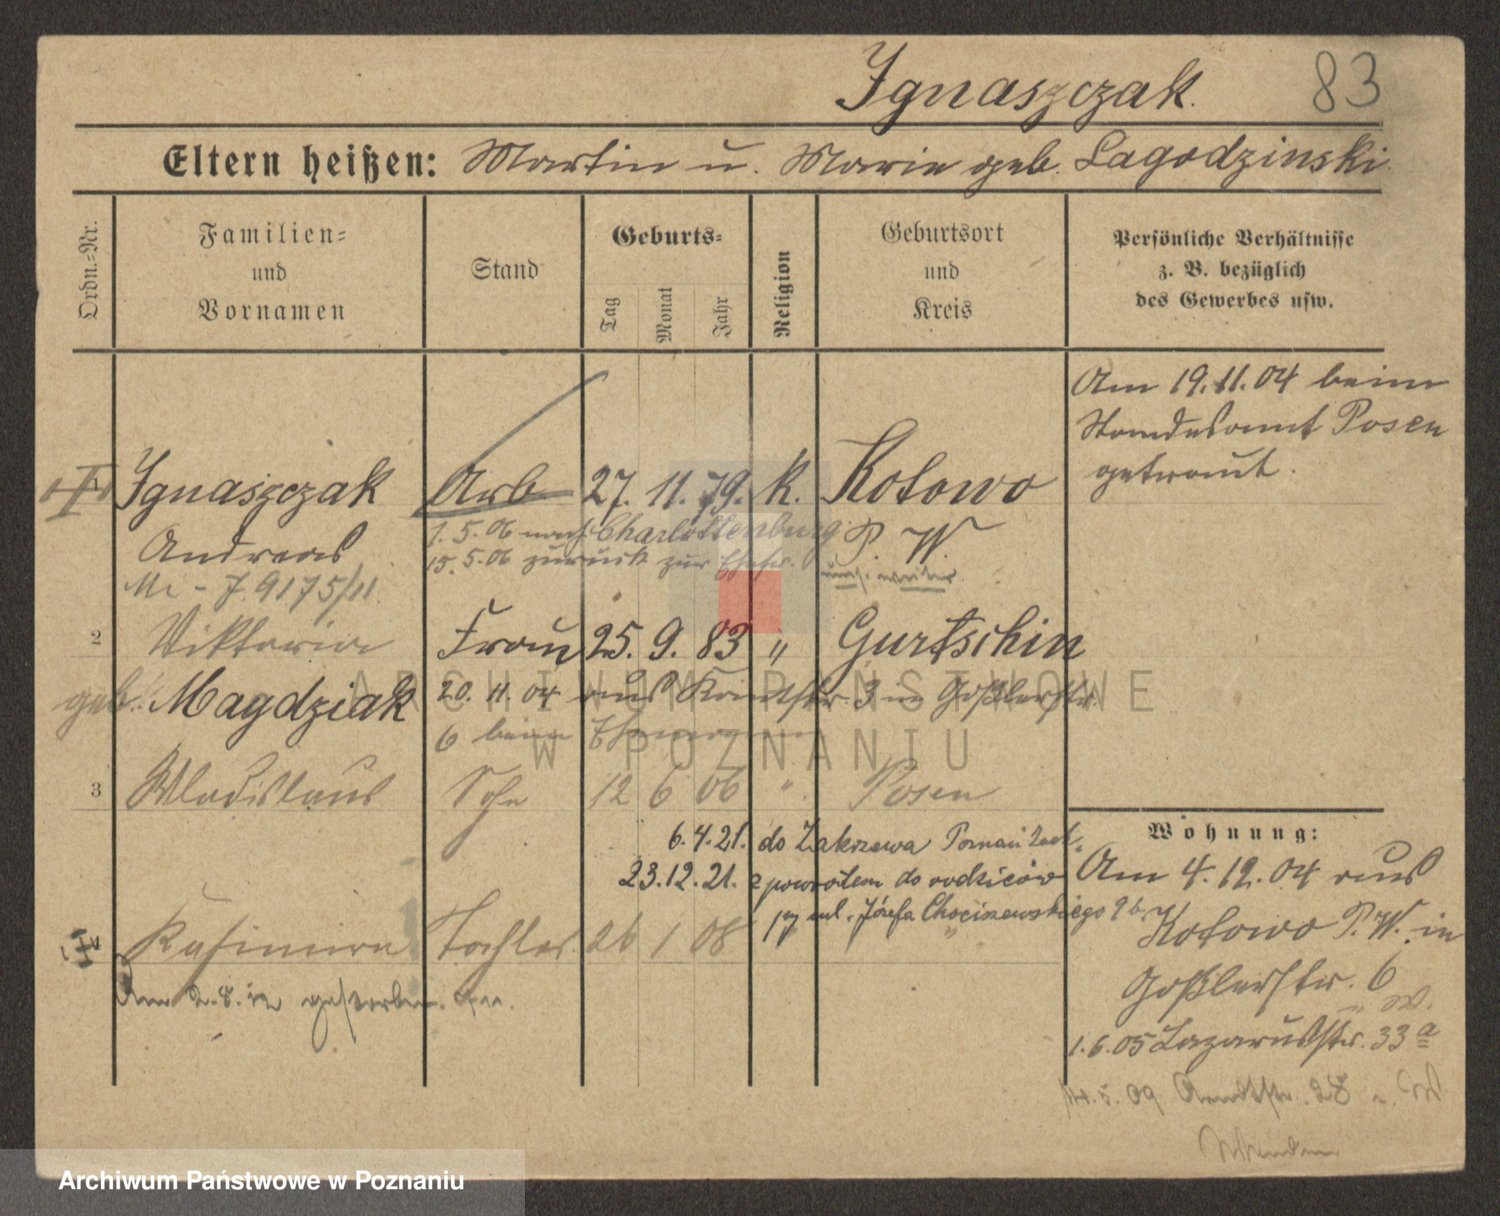 Ignaszczak. 83
Eltern heißen: Martin u. Marie geb. Lagodzinski.
Ordn.-Nr.
Familien-
und
Vornamen
Stand
Geburts-
Tag
Monat
Jahr
Religion
Geburtsort
und
Kreis
Persönliche Verhältnisse
z. B. bezüglich
des Gewerbes usw.
Am 19.11.04 beim
Standesamt Posen
getraut.
Ignaszczak Arb 27. 11. 79. K. Kotowo
Andreas
1.5.06 nach Charlottenburg
P. W.
15.5.06 zurück zur Ehefr.
9175/11
2 Viktoria Frau 25. 9. 83 " Gurtschin
geb. Magdziak
20.11.04 aus 3 in Goßlerstr.
6 beim Ehemann
3 Wladislaus Sohn 12 6 06 " Posen
6.4.21. do Zakrzewa Poznań
23.12.21. z powrotem do rodziców
ul. Józefa Chociszewskiego
4 Kasimira Tochter 26 1 08 "
Am 2.8.12 gestorben.
Wohnung:
Am 4.12.04 aus
Kotowo P. W. in
Goßlerstr. 6
W.
1.6.05 Lazarusstr. 33 a
09 Arndtstr. 28
ARCHIWUM PAŃSTWOWE
W POZNANIU
Archiwum Państwowe w Poznaniu